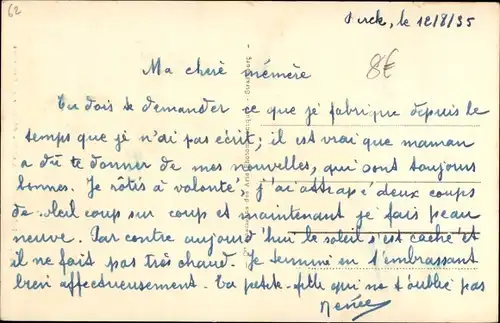 62
Berck, le 12/8/35
8€
Ma cherè mémère
Tu dois te demander ce que je fabrique depuis le
temps que je n'ai pas écrit; il est vrai que maman
a dû te donner de mes nouvelles, qui sont toujours
bonnes. Je rôtis à volonté, j'ai attrapé deux coups
de soleil coup sur coup et maintenant je fais peau
neuve. Par contre aujourd'hui le soleil s'est caché et
il ne fait pas très chaud. Je termine en t'embrassant
bien affectueusement. Ta petite-fille qui ne t'oublie pas
Renée